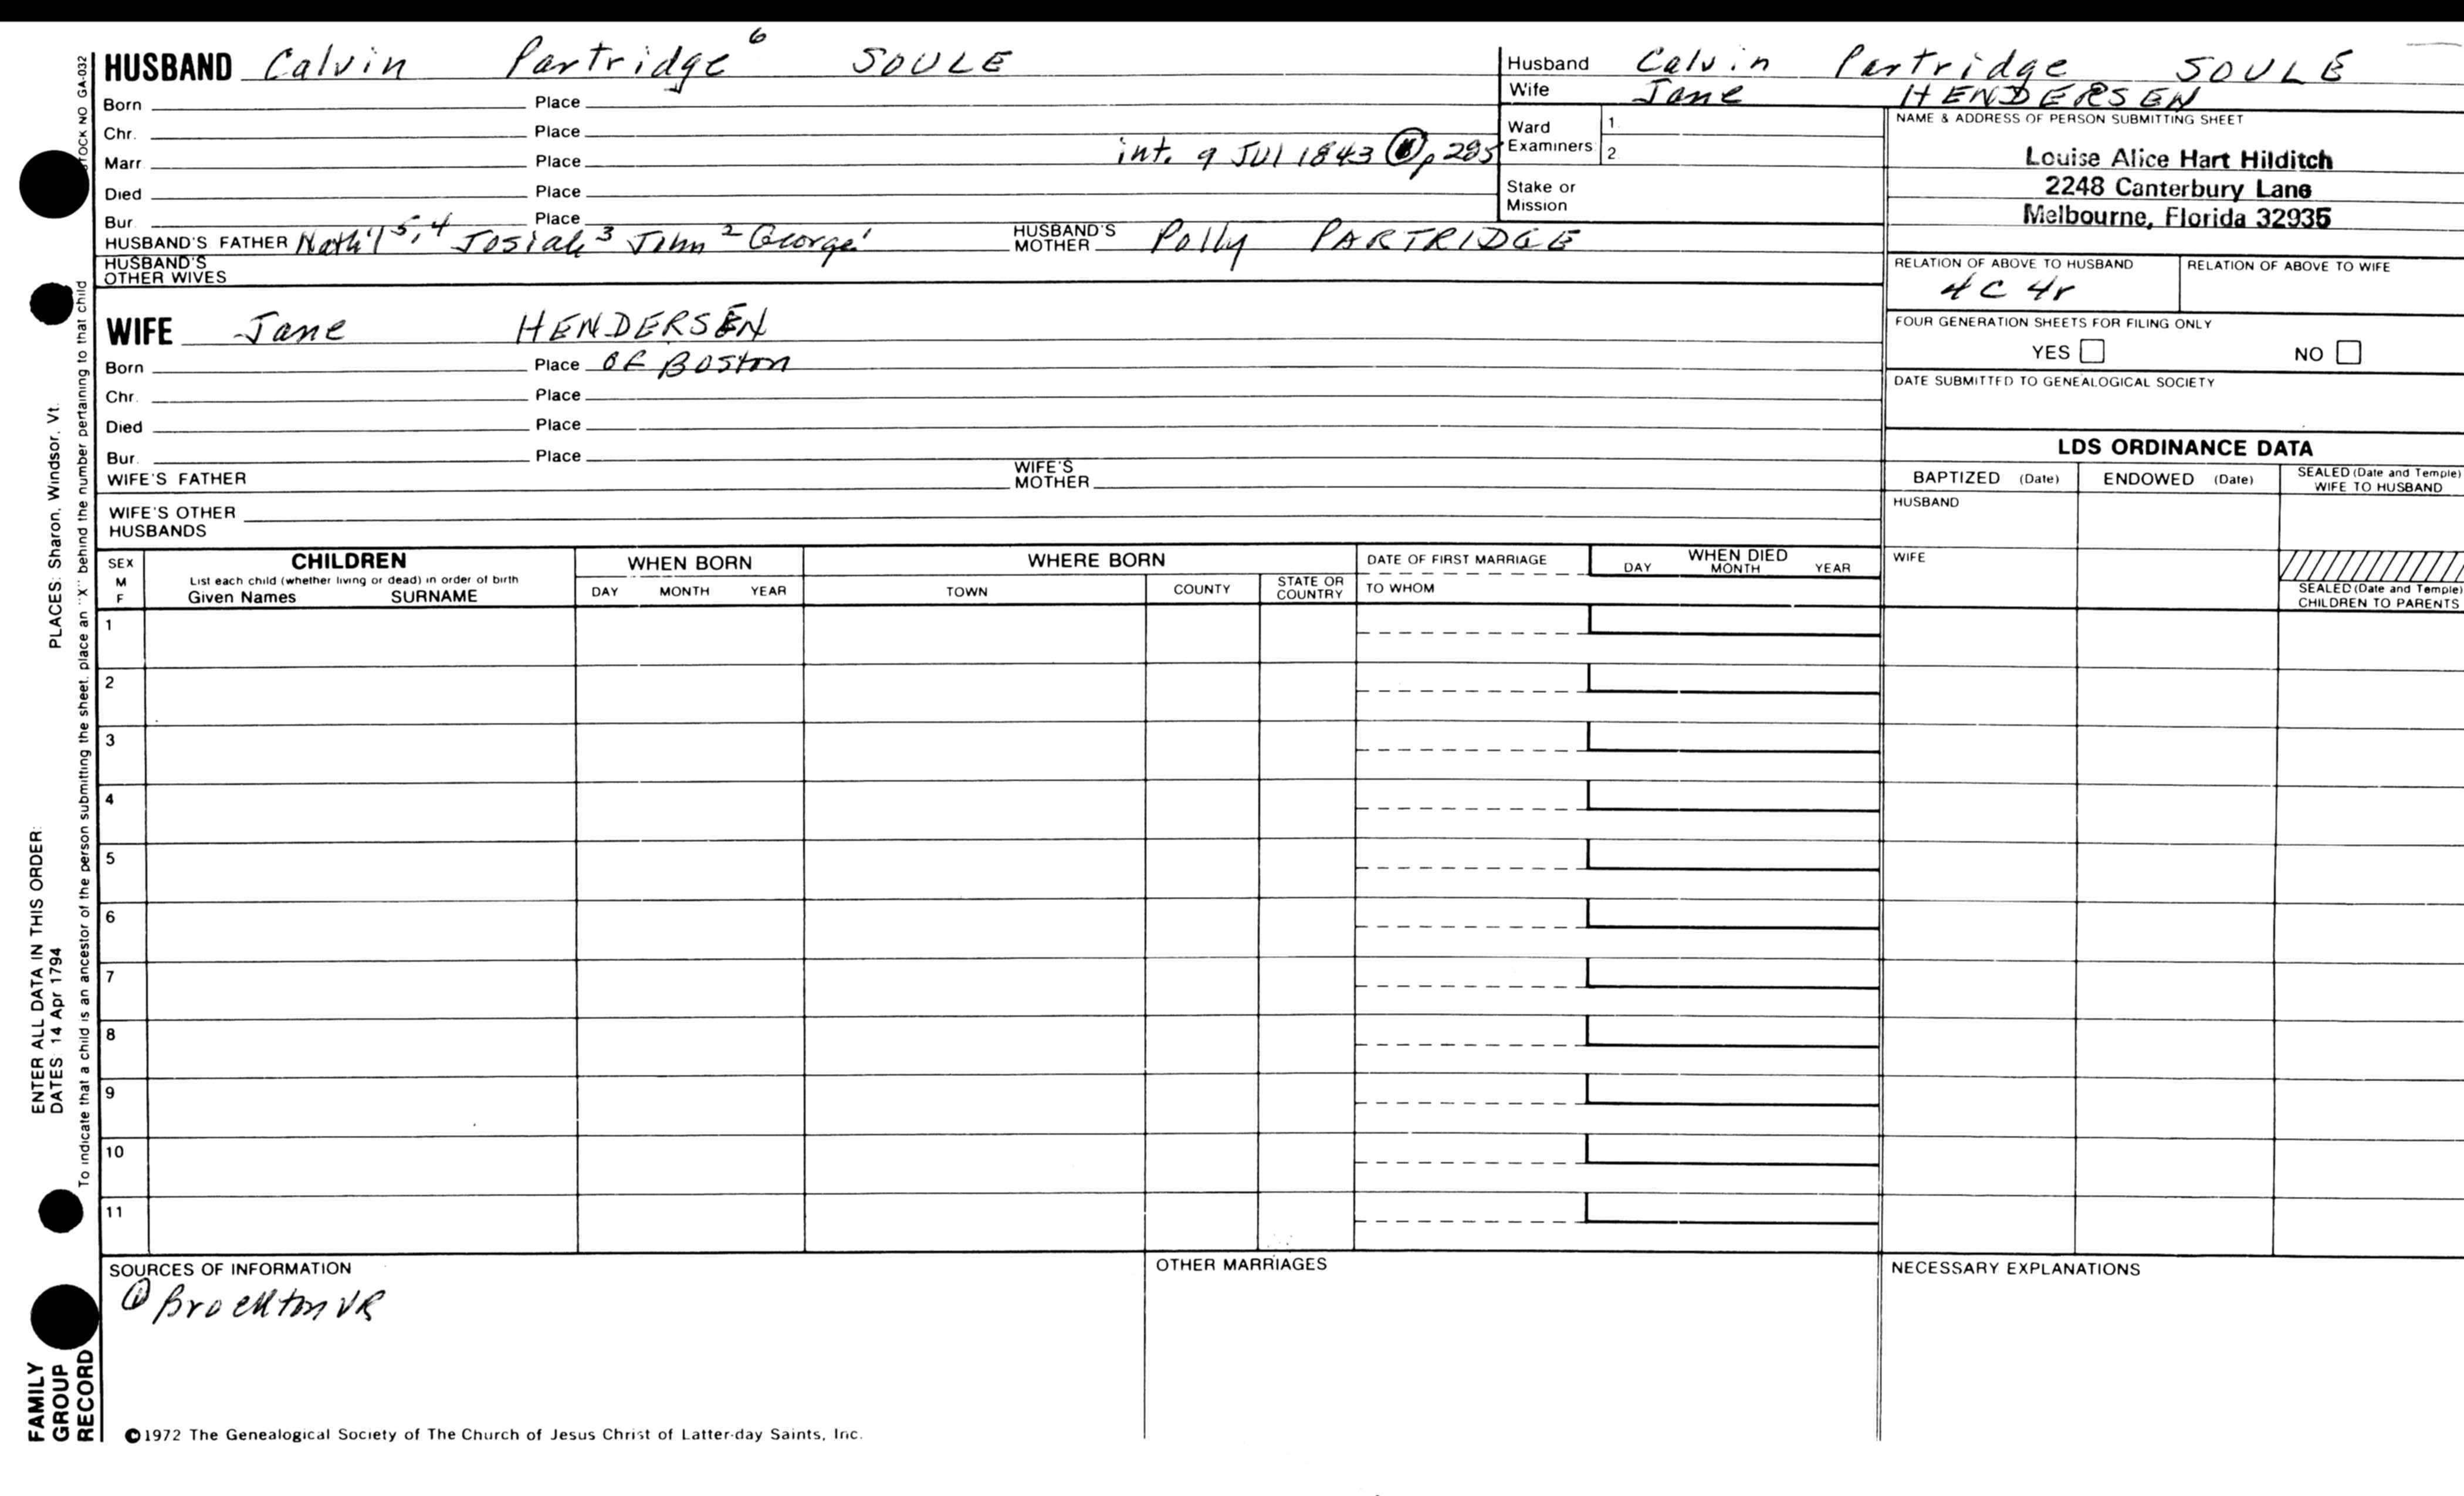 HUSBAND Calvin Partridge⁶ SOULE
Born Place
Chr. Place
Marr. Place int. 9 Jul 1843 ① p 285
Died Place
Bur. Place
HUSBAND'S FATHER Nath'l⁵,⁴ Josiah³ John² George¹ HUSBAND'S MOTHER Polly PARTRIDGE
HUSBAND'S OTHER WIVES
WIFE Jane HENDERSEN
Born Place of Boston
Chr. Place
Died Place
Bur. Place
WIFE'S FATHER WIFE'S MOTHER
WIFE'S OTHER HUSBANDS
Husband Calvin Partridge SOULE
Wife Jane HENDERSEN
Ward Examiners 1. 2.
Stake or Mission
NAME & ADDRESS OF PERSON SUBMITTING SHEET
Louise Alice Hart Hilditch
2248 Canterbury Lane
Melbourne, Florida 32935
RELATION OF ABOVE TO HUSBAND RELATION OF ABOVE TO WIFE
4C 4r
FOUR GENERATION SHEETS FOR FILING ONLY
YES NO
DATE SUBMITTED TO GENEALOGICAL SOCIETY
LDS ORDINANCE DATA
BAPTIZED (Date) ENDOWED (Date) SEALED (Date and Temple) WIFE TO HUSBAND
HUSBAND
WIFE
SEALED (Date and Temple) CHILDREN TO PARENTS
SEX M F
CHILDREN
List each child (whether living or dead) in order of birth
Given Names SURNAME
WHEN BORN
DAY MONTH YEAR
WHERE BORN
TOWN COUNTY STATE OR COUNTRY
DATE OF FIRST MARRIAGE
TO WHOM
WHEN DIED
DAY MONTH YEAR
1
2
3
4
5
6
7
8
9
10
11
SOURCES OF INFORMATION
① Brockton VR
OTHER MARRIAGES
NECESSARY EXPLANATIONS
©1972 The Genealogical Society of The Church of Jesus Christ of Latter-day Saints, Inc.
FAMILY GROUP RECORD
ENTER ALL DATA IN THIS ORDER:
DATES: 14 Apr 1794 PLACES: Sharon, Windsor, Vt.
To indicate that a child is an ancestor of the person submitting the sheet, place an "X" behind the number pertaining to that child
STOCK NO GA-032